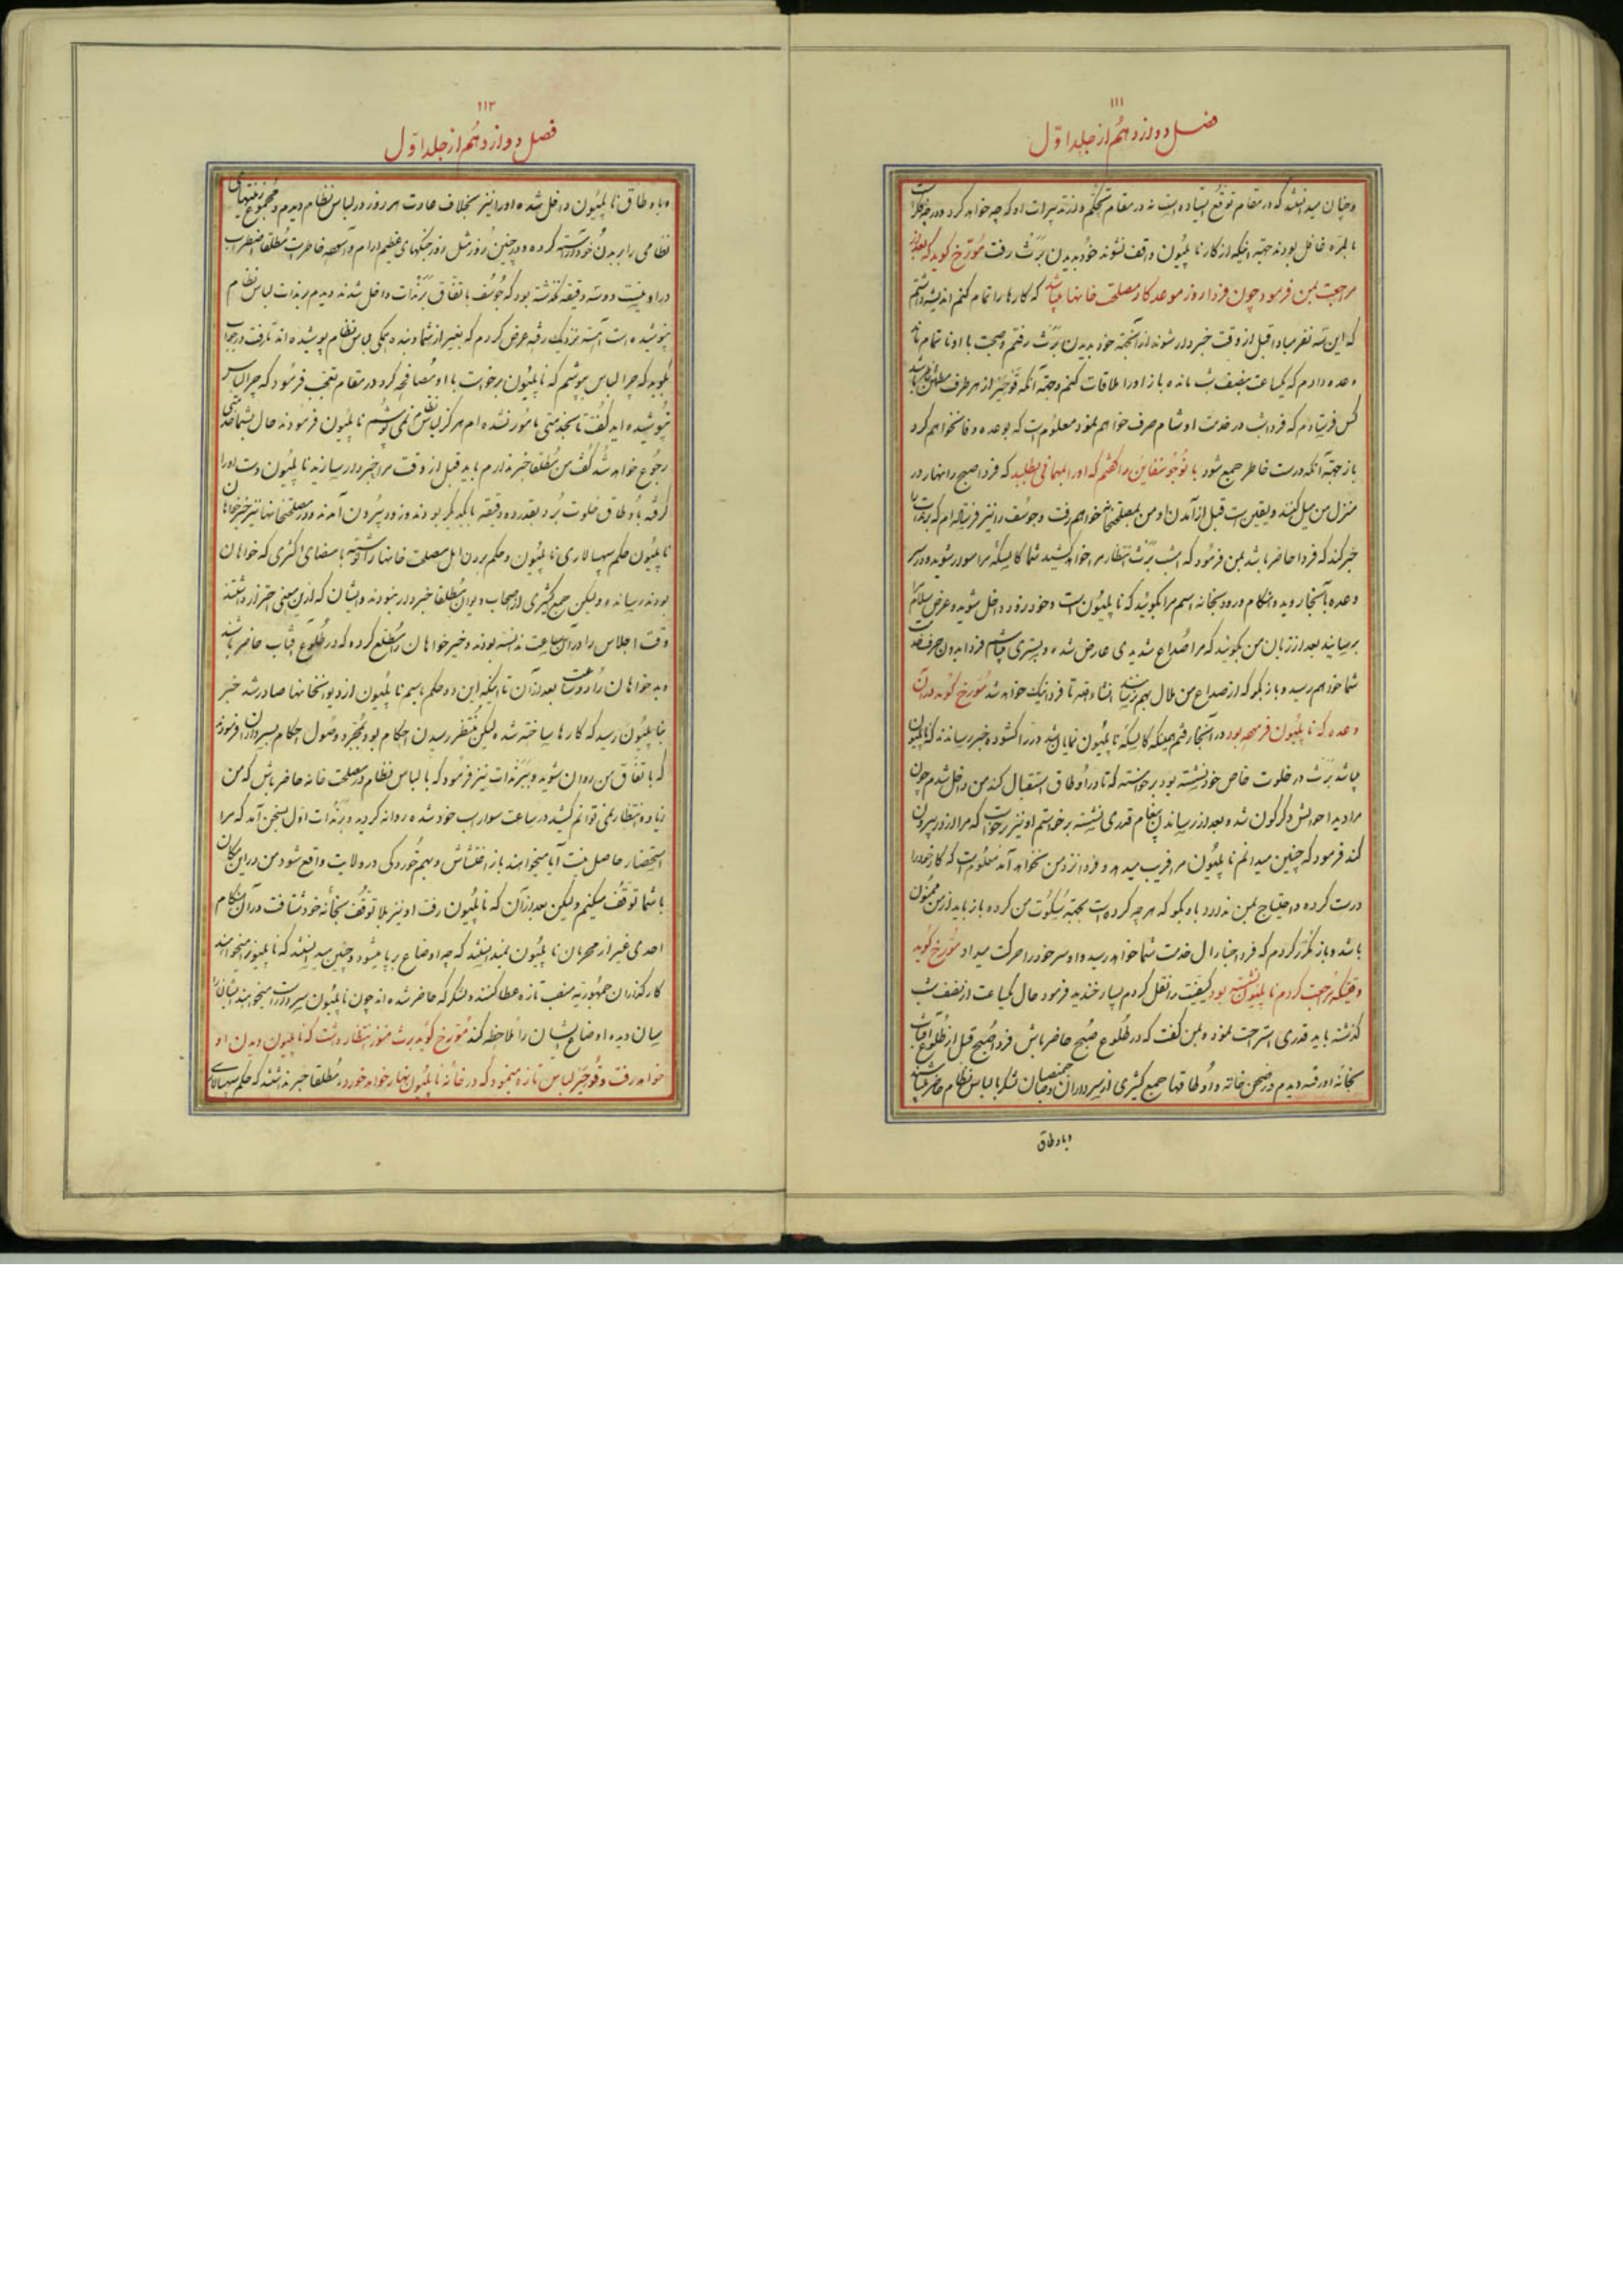 ۱۱۱
فصل دوازدهم از جلد اوّل
و چنان میدانستند که در مقام توقع ایستاده است نه در مقام تحکم و از تدبیرات او که چه خواهد کرد و در چه کار است
بالمرّه غافل بودند جهة اینکه از کار ناپلیون واقف نشوند خود بدیدن برّث رفت مورّخ گوید که بعد از
مراجعت بمن فرمود چون فردا روز موعد کار مصلحت خانها میباشد که کارها را تمام کنم اندیشه داشتم
که این سه نفر مبادا قبل از وقت خبردار شوند از آنجهة خود بدیدن برّث رفتم و صحبت با او ناتمام ماند
وعده دادم که یکساعت بنصف شب مانده باز او را ملاقات کنم و جهة آنکه قوجیز از هر طرف مطمئن خاطر باشد
کس فرستادم که فردا شب در خدمت او شام صرف خواهم نمود معلوم است که بوعده وفا نخواهم کرد
باز جهة آنکه درست خاطر جمع شود با توجو سفاین داکفتم که او را بمهمانی بطلبد که فردا صبح را نهار در
منزل من میل کنند و یقین است قبل از آمدن او من بمصلحتخانه خواهم رفت و جوسف را نیز فرستاده‌ام که برندات را
خبر کند که فردا حاضر باشد بمن فرمود که امشب برّث انتظار مرا خواهد کشید شما کالسکهٔ مرا سوار شوید و در سر
وعده بآنجا روید و هنگام ورود بخانه اسم مرا بگوئید که ناپلیون است و خود زود داخل شوید و عرض سلام مرا
برسانید بعد از زبان من بگویند که مرا صداع شدیدی عارض شده و بستری میباشم فردا بدون حرف خدمت
شما خواهم رسید و باز بگو که از صداع من ملال بهم نرساند انشاءالله تا فردا نیک خواهد شد مورّخ گوید در آن
وعده که ناپلیون فرموده بود در آنجا رفتم همینکه کالسکهٔ ناپلیون نمایان شد در را کشوده خبر رساندند که ناپلیون
میباشد برّث در خلوت خاص خود نشسته بود برخواسته که تا در اوطاق استقبال کند من داخل شدم چون
مرا دید احوالش دگرگون شد و بعد از رساندن پیغام قدری نشسته برخواستم او نیز برخواست که مرا از در بیرون
کند فرمود که چنین میدانم ناپلیون مرا فریب میدهد و فردا نزد من نخواهد آمد معلوم است که کار خود را
درست کرده و احتیاج بمن ندارد باو بگو که هر چه کرده است بجهة سکوت من کرده باز باید از من ممنون
باشد و باز مکرّر کردم که فردا جنارال خدمت شما خواهد رسید و او سر خود را حرکت میداد مورّخ گوید
وقتیکه مراجعت کردم ناپلیون نشسته بود کیفیت را نقل کردم بسیار خندید فرمود حال یکساعت از نصف شب
گذشته باید قدری استراحت نمود و بمن گفت که در طلوع صبح حاضر باش فردا صبح قبل از طلوع آفتاب
بخانه او رفته دیدم در صحن خانه و اوطاقها جمع کثیری از سرداران و صاحبمنصبان لشکر با لباس نظام حاضر میباشند
و باوطاق
۱۱۲
فصل دوازدهم از جلد اوّل
و باوطاق ناپلیون داخل شده او را نیز بخلاف عادت هر روز در لباس نظام دیدم و مجموع زینتهای
نظامی را بر بدن خود آراسته کرده و در چنین روز مثل روز جنگهای عظیم آرام و آسوده خاطر است مطلقا اضطراب
در او نیست دو سه دقیقه نگذشته بود که جوسف باتفاق برندات داخل شدند دیدم برندات لباس نظام
نپوشیده است آهسته نزدیک رفته عرض کردم که بغیر از شما و بنده همکی لباس نظام پوشیده‌اند تا رفت در جواب
بگوید که چرا لباس بپوشم که ناپلیون برخواست با او مصافحه کرد در مقام تعجب فرمود که چرا لباس
نپوشیده‌اید گفت تا بخدمتی مامور نشده‌ام هرگز لباس نظام نمی‌پوشم ناپلیون فرمودند حال بشما خدمتی
رجوع خواهد شد گفت من مطلقا خبر ندارم باید قبل از وقت مرا خبردار سازید ناپلیون دست او را
گرفته باوطاق خلوت برد بقدر ده دقیقه با یکدیگر بودند و زود بیرون آمدند و در مصلحتخانها نیز خیرخواهان
ناپلیون حکم سپهسالاری ناپلیون و حکم بردن اهل مصلحت خانها را نوشته بامضای اکثری که خواهان
بودند رسانده و لیکن جمع کثیری از اصحاب دیوان مطلقا خبردار نبودند و ایشان که ازین معنی احتراز داشتند
وقت اجلاس را در آن ساعت ندانسته بودند و خیرخواهان را مطلع کرده که در طلوع آفتاب حاضر باشند
و بدخواهان را دو ساعت بعد از آن تا اینکه این دو حکم باسم ناپلیون از دیوانخانها صادر شد خبر
بناپلیون رسید که کارها ساخته شده لیکن منتظر رسیدن احکام بود بمجرّد وصول احکام بسرداران فرمودند
که باتفاق من روان شوید و ببرندات نیز فرمود که با لباس نظام در مصلحت خانه حاضر باش که من
زیاده انتظار نمی‌توانم کشید در ساعت سوار اسب خود شده روانه کردید و برندات اوّل بسخن آمد که مرا
استحضار حاصل نیست آیا میخواهند باز اغتشاش و بهم خوردگی در ولایت واقع شود من در این مکان
با شما توقف میکنم و لیکن بعد از آن که ناپلیون رفت او نیز بلا توقف بخانه خود شتافت در آن هنگام
احدی غیر از محرمان ناپلیون نمیدانستند که چه اوضاع برپا میشود و چنین میدانستند که ناپلیون میخواهند
کارگذاران جمهوریه منصب تازه عطا کنند و لشکر که حاضر شده‌اند چون ناپلیون سردار است میخواهند ایشان را
سان دیده اوضاع ایشان را ملاحظه کند مورّخ گوید برث هنوز انتظار داشت که ناپلیون بدیدن او
خواهد رفت و قوجیز لباس تازه مینمود که در خانه ناپلیون نهار خواهد خورد و مطلقا خبر نداشتند که حکم سپهسالاری